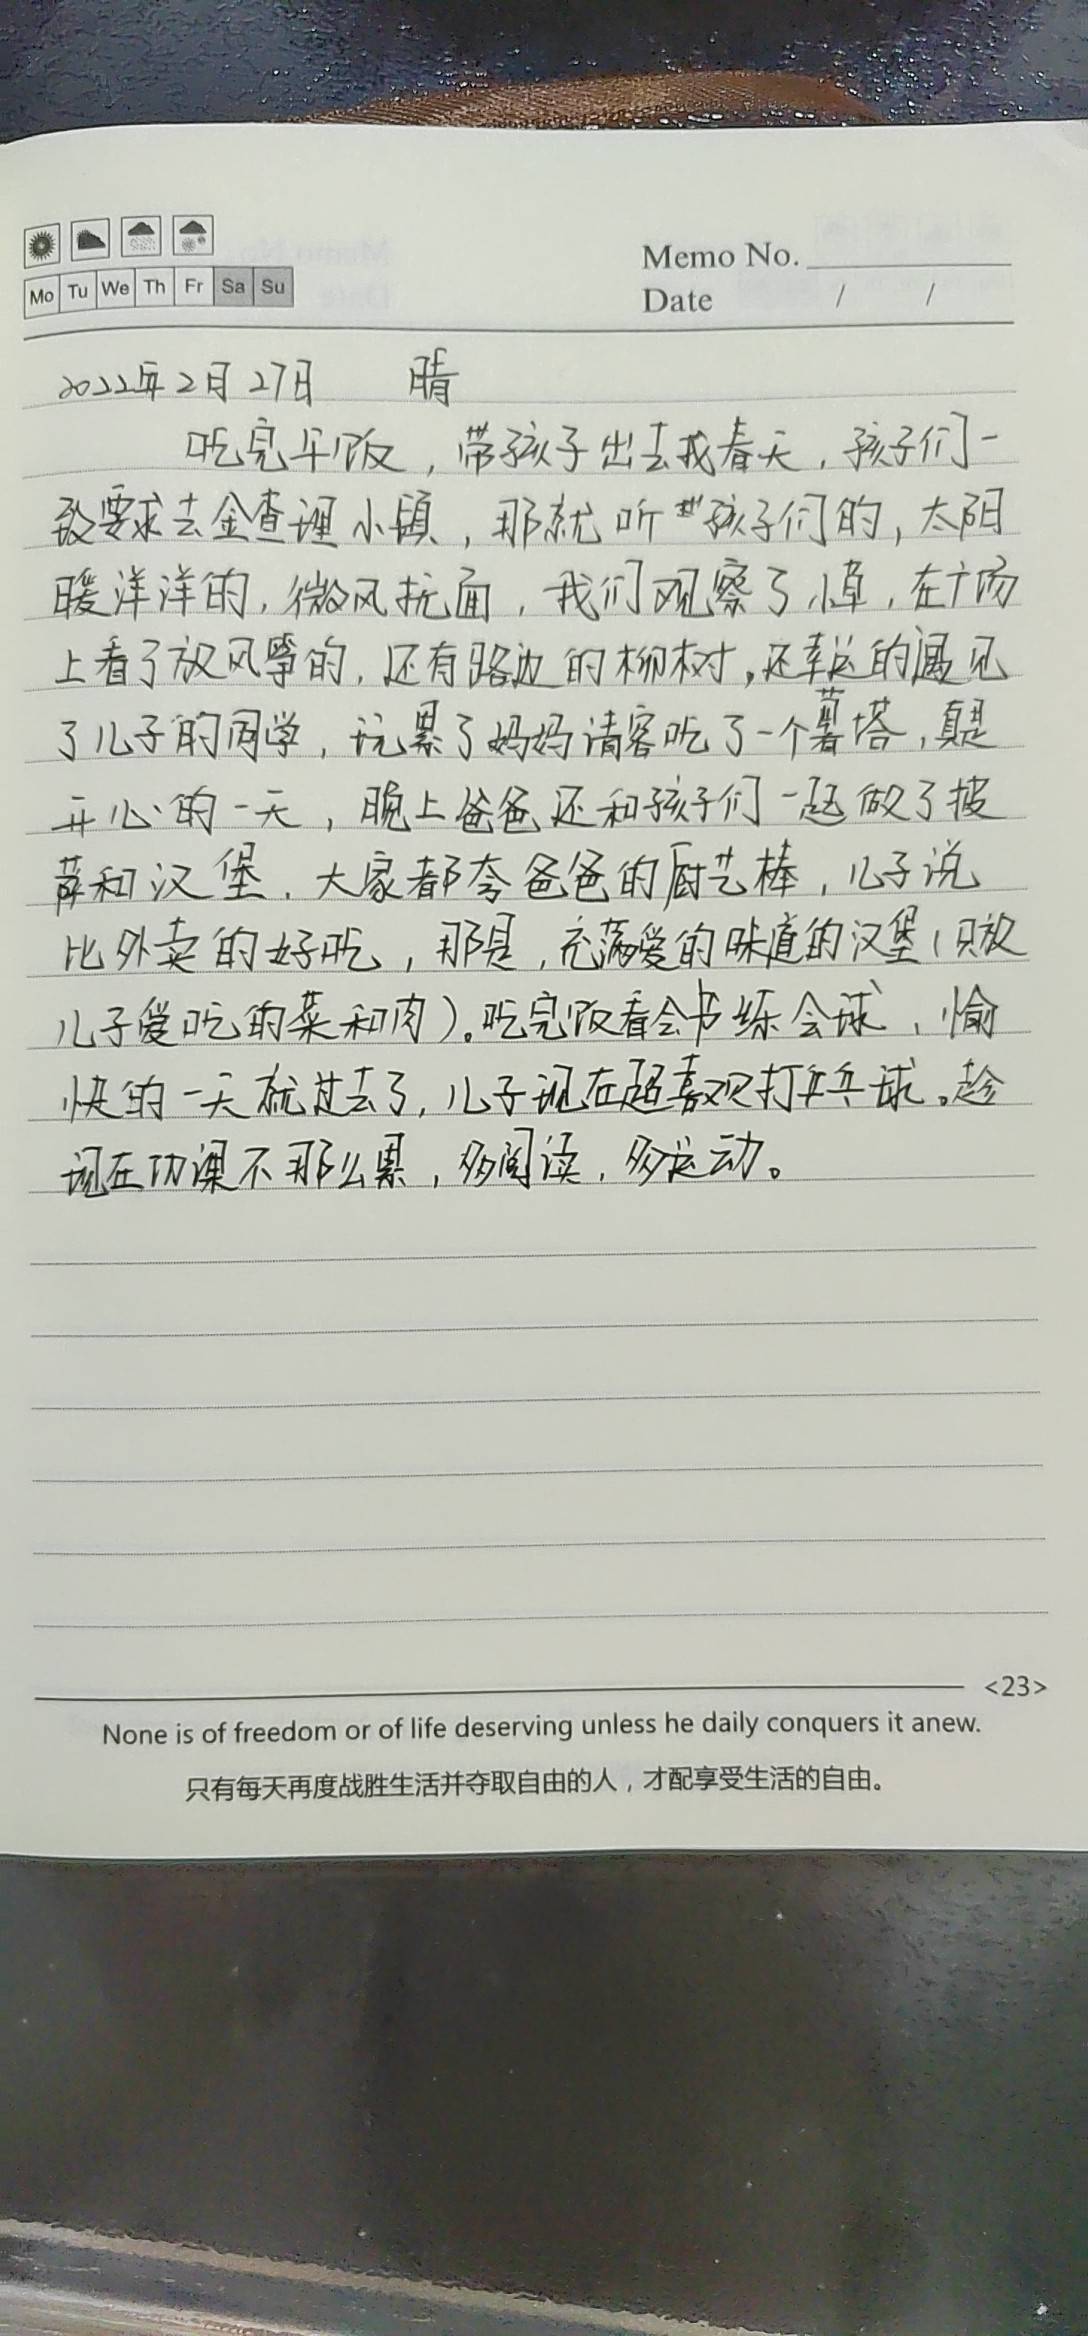 Mo Tu We Th Fr Sa Su
Memo No.
Date / /
2022年2月27日 晴
吃完午饭，带孩子出去找春天，孩子们一
致要求去金查理小镇，那就听孩子们的，太阳
暖洋洋的，微风扰面，我们观察了小草，在广场
上看了放风筝的，还有路边的柳树，还幸运的遇见
了儿子的同学，玩累了妈妈请客吃了一个薯塔，真是
开心的一天，晚上爸爸还和孩子们一起做了披
萨和汉堡，大家都夸爸爸的厨艺棒，儿子说
比外卖的好吃，那是，充满爱的味道的汉堡（只放
儿子爱吃的菜和肉）。吃完饭看会书练会球，愉
快的一天就过去了，儿子现在超喜欢打乒乓球。趁
现在功课不那么累，多阅读，多运动。
<23>
None is of freedom or of life deserving unless he daily conquers it anew.
只有每天再度战胜生活并夺取自由的人，才配享受生活的自由。